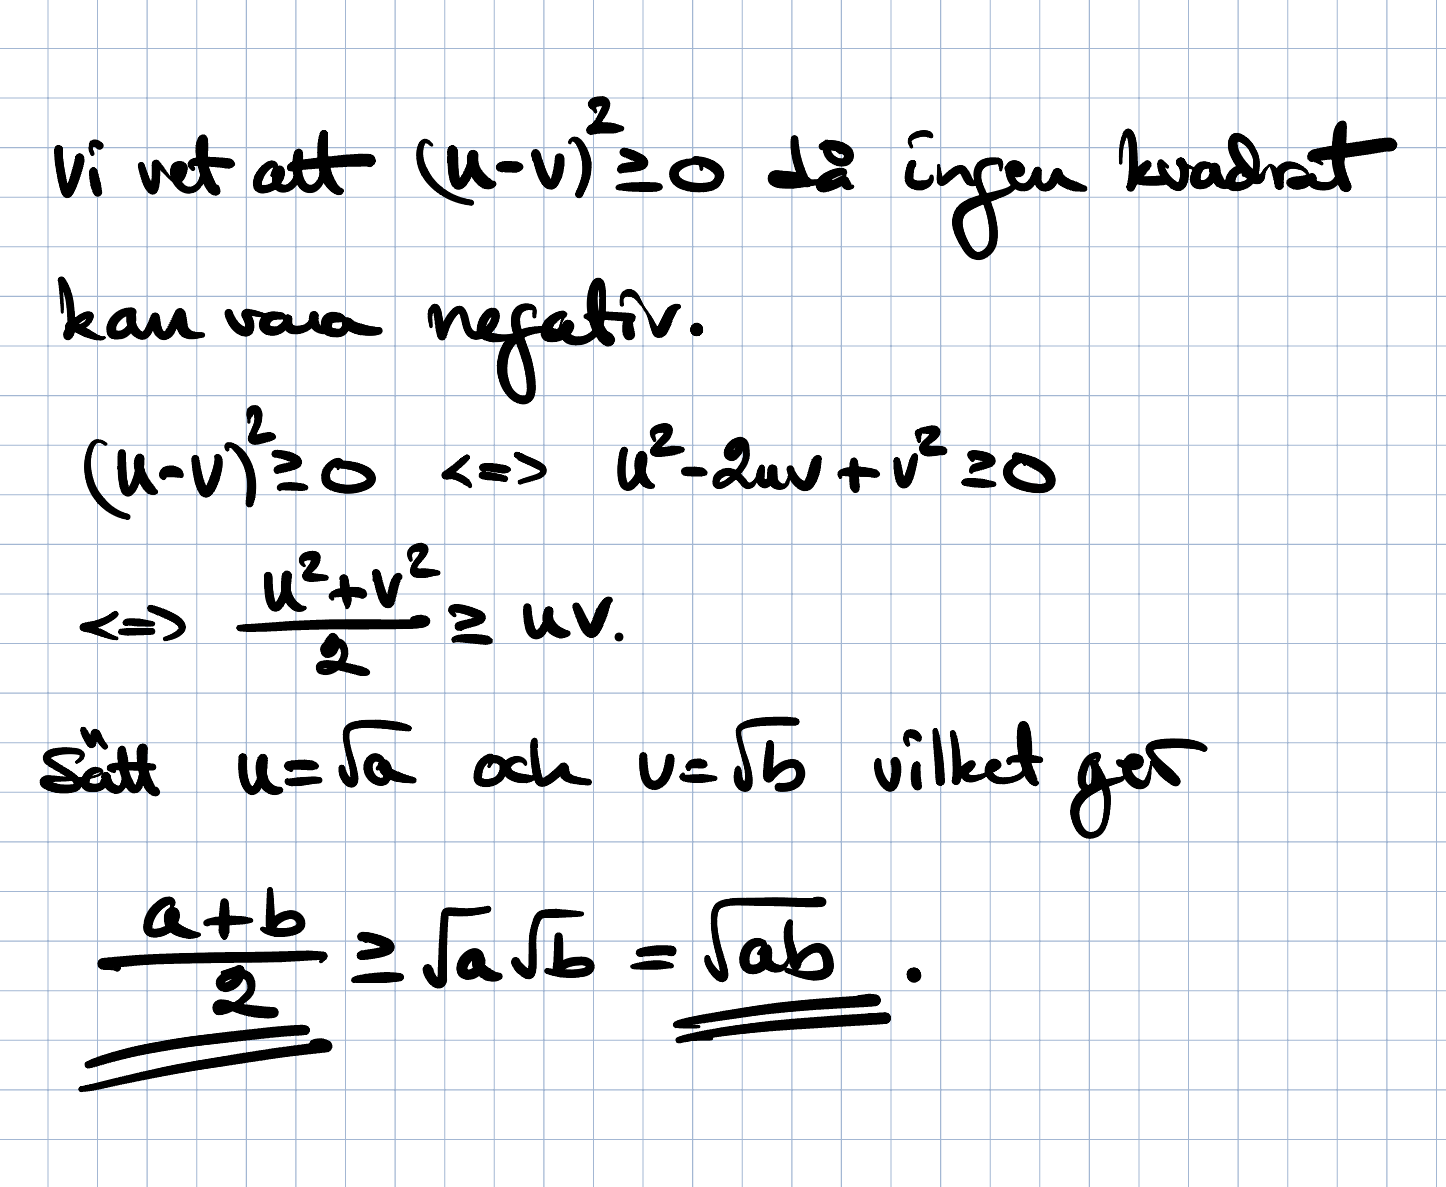 Vi vet att (u-v)² ≥ 0 då ingen kvadrat
kan vara negativ.
(u-v)² ≥ 0 <=> u² - 2uv + v² ≥ 0
<=> (u² + v²)/2 ≥ uv.
Sätt u = √a och v = √b vilket ger
(a+b)/2 ≥ √a √b = √ab .